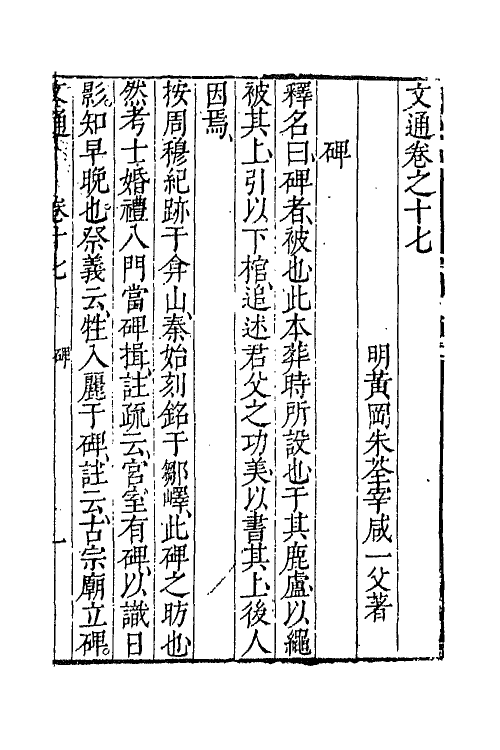 文通卷之十七
明黃岡朱荃宰咸一父著
碑
釋名曰、碑者、被也、此本葬時所設也、于其鹿盧、以繩
被其上、引以下棺、追述君父之功美、以書其上、後人
因焉、
按周穆紀跡于弇山、秦始刻銘于鄒嶧、此碑之昉也、
然考士婚禮入門當碑揖、註疏云、宮室有碑、以識日
影、知早晚也、祭義云、牲入麗于碑、註云、古宗廟立碑。
文通 卷十七 碑 一